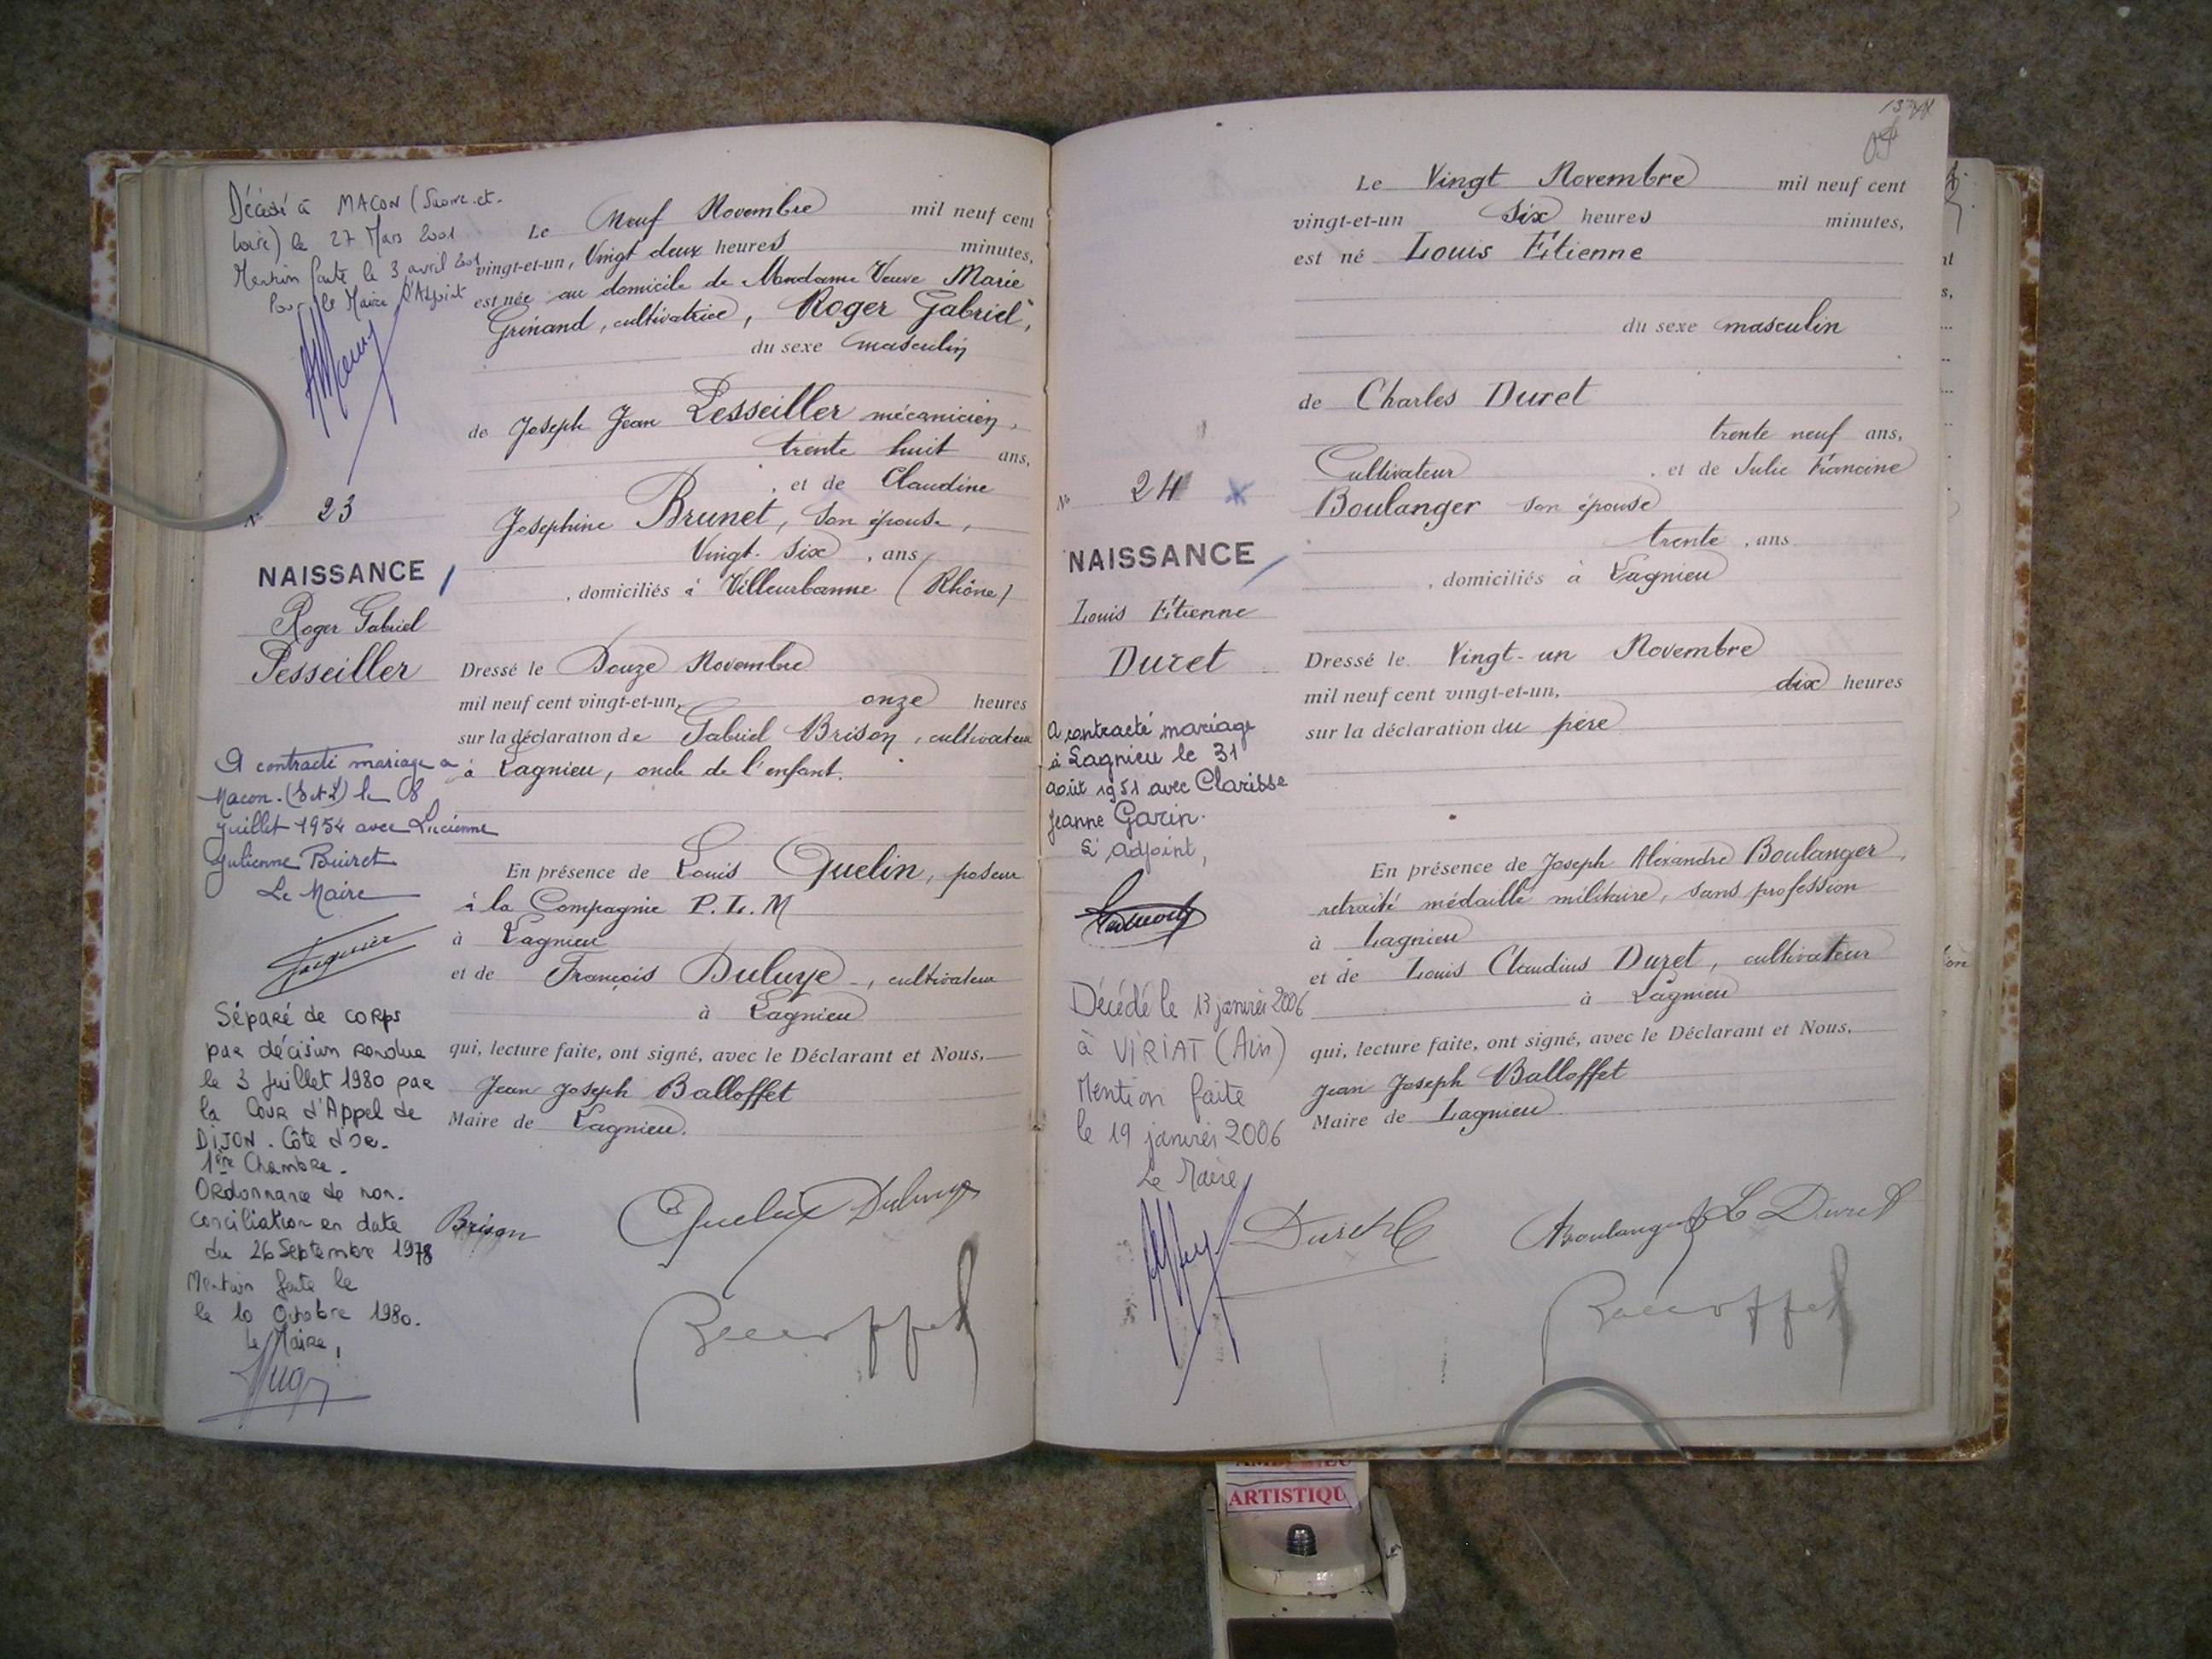 Décédé à MACON (Saône-et-
Loire) le 27 Mars 2001
Mention faite le 3 avril 2001
Pour le Maire l'Adjoint
N° 23
NAISSANCE
Roger Gabriel
Pesseiller
A contracté mariage à
Macon (S et L) le 08
juillet 1954 avec Lucienne
Julienne Buiret
Le Maire
Séparé de corps
par décision rendue
le 3 Juillet 1980 par
la Cour d'Appel de
DIJON - Côte d'Or -
1ère Chambre -
Ordonnance de non-
conciliation en date
du 26 Septembre 1978
Mention faite le
le 10 Octobre 1980.
Le Maire,
Le Neuf Novembre mil neuf cent
vingt-et-un, Vingt deux heures minutes,
est née au domicile de Madame Veuve Marie
Grinand, cultivatrice, Roger Gabriel,
du sexe masculin
de Joseph Jean Pesseiller mécanicien,
trente huit ans,
, et de Claudine
Josephine Brunet, son épouse,
Vingt-six, ans
, domiciliés à Villeurbanne (Rhône)
Dressé le Douze Novembre
mil neuf cent vingt-et-un, onze heures
sur la déclaration de Gabriel Brison, cultivateur
à Lagnieu, oncle de l'enfant.
En présence de Louis Quelin, poseur
à la Compagnie P.L.M
à Lagnieu
et de François Duluye, cultivateur
à Lagnieu
qui, lecture faite, ont signé, avec le Déclarant et Nous,
Jean Joseph Balloffet
Maire de Lagnieu.
Brison Quelin Duluye
Balloffet
N° 24
NAISSANCE
Louis Etienne
Duret
A contracté mariage
à Lagnieu le 31
août 1951 avec Clarisse
Jeanne Garin.
L'adjoint,
Décédé le 13 janvier 2006
à VIRIAT (Ain)
Mention faite
le 19 janvier 2006
Le Maire
Le Vingt Novembre mil neuf cent
vingt-et-un six heures minutes,
est né Louis Etienne
du sexe masculin
de Charles Duret
trente neuf ans,
Cultivateur, et de Julie Francine
Boulanger son épouse
trente, ans
, domiciliés à Lagnieu
Dressé le Vingt-un Novembre
mil neuf cent vingt-et-un, dix heures
sur la déclaration du père
En présence de Joseph Alexandre Boulanger,
retraité médaillé militaire, sans profession
à Lagnieu
et de Louis Claudius Duret, cultivateur
à Lagnieu
qui, lecture faite, ont signé, avec le Déclarant et Nous,
Jean Joseph Balloffet
Maire de Lagnieu
Duret C ABoulanger L Duret
Balloffet
ARTISTIQU